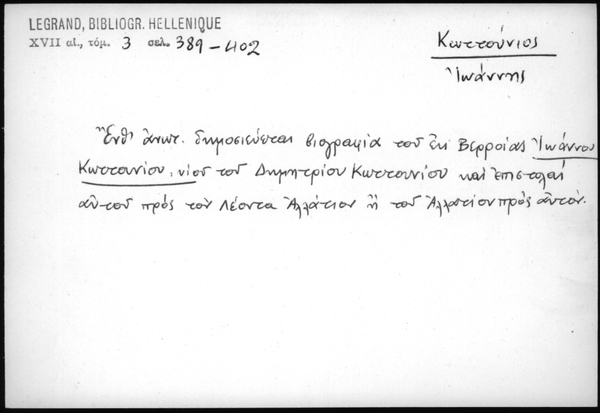 LEGRAND, BIBLIOGR. HELLENIQUE
XVII αἰ., τόμ. 3 σελ. 389-402
Κωττούνιος
Ἰωάννης
Ἔνθ' ἀνωτ. δημοσιεύεται βιογραφία τοῦ ἐκ Βερροίας Ἰωάννου
Κωττουνίου, υἱοῦ τοῦ Δημητρίου Κωττουνίου καὶ ἐπιστολαὶ
αὐτοῦ πρὸς τὸν Λέοντα Ἀλλάτιον ἢ τοῦ Ἀλλατίου πρὸς αὐτόν.